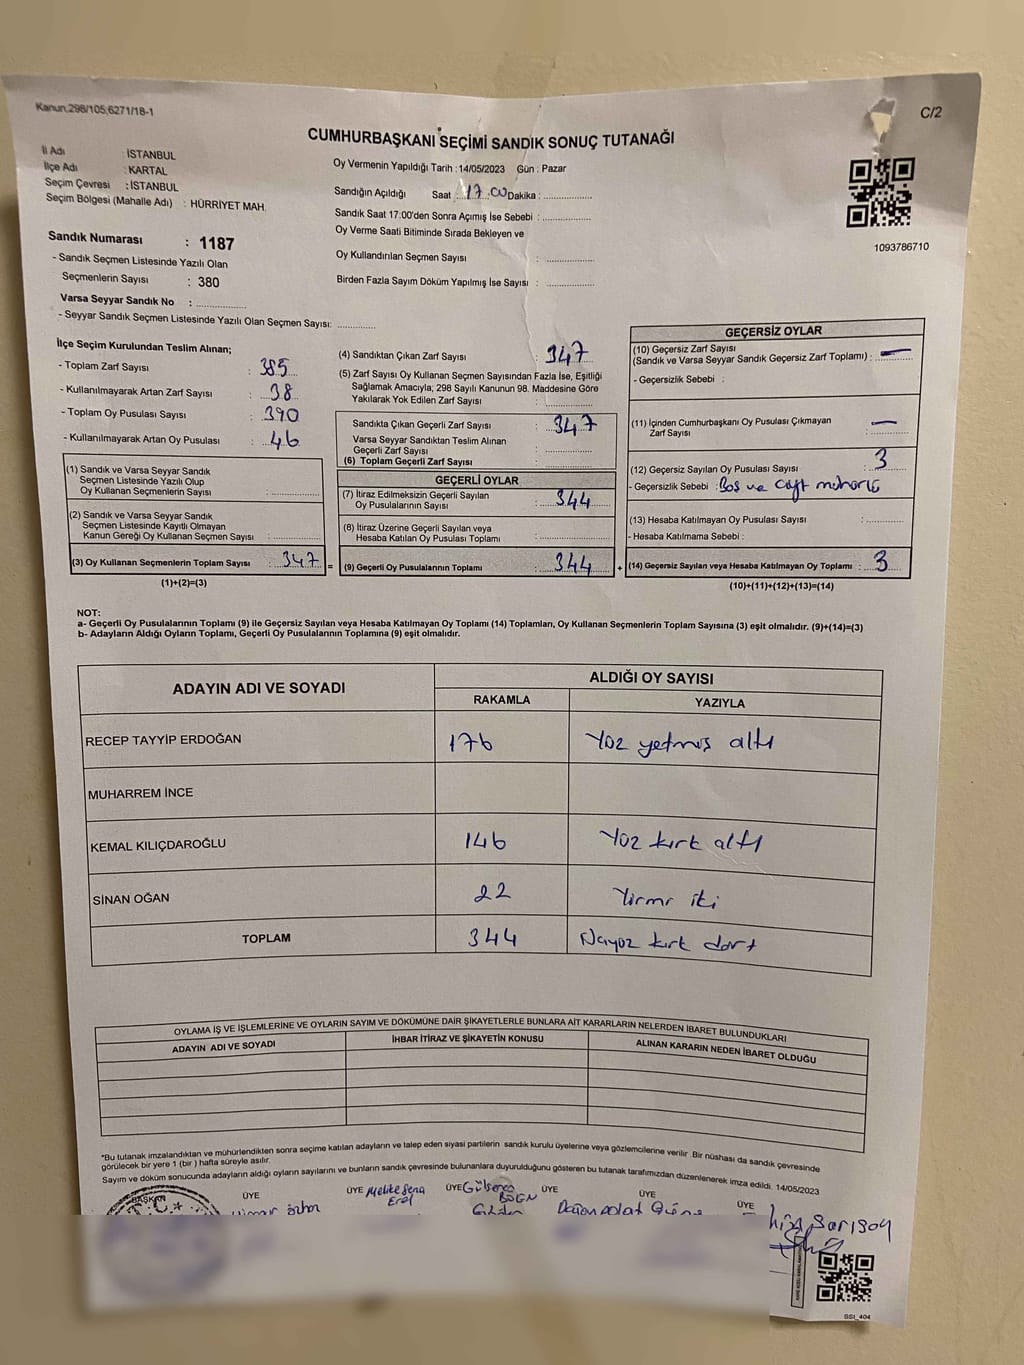 Kanun.298/105,6271/18-1
C/2
CUMHURBAŞKANI SEÇİMİ SANDIK SONUÇ TUTANAĞI
İl Adı : İSTANBUL
İlçe Adı : KARTAL
Seçim Çevresi : İSTANBUL
Seçim Bölgesi (Mahalle Adı) : HÜRRİYET MAH.
Sandık Numarası : 1187
- Sandık Seçmen Listesinde Yazılı Olan
Seçmenlerin Sayısı : 380
Varsa Seyyar Sandık No : ..............
- Seyyar Sandık Seçmen Listesinde Yazılı Olan Seçmen Sayısı: ..............
Oy Vermenin Yapıldığı Tarih : 14/05/2023 Gün : Pazar
Sandığın Açıldığı Saat : 17:00 Dakika : ..............
Sandık Saat 17.00'den Sonra Açımış İse Sebebi : ..............
Oy Verme Saati Bitiminde Sırada Bekleyen ve
Oy Kullandırılan Seçmen Sayısı : ..............
Birden Fazla Sayım Döküm Yapılmış İse Sayısı : ..............
1093786710
İlçe Seçim Kurulundan Teslim Alınan;
- Toplam Zarf Sayısı : 385
- Kullanılmayarak Artan Zarf Sayısı : 38
- Toplam Oy Pusulası Sayısı : 390
- Kullanılmayarak Artan Oy Pusulası : 46
(1) Sandık ve Varsa Seyyar Sandık
Seçmen Listesinde Yazılı Olup
Oy Kullanan Seçmenlerin Sayısı : ..............
(2) Sandık ve Varsa Seyyar Sandık
Seçmen Listesinde Kayıtlı Olmayan
Kanun Gereği Oy Kullanan Seçmen Sayısı : ..............
(3) Oy Kullanan Seçmenlerin Toplam Sayısı : 347
(1)+(2)=(3)
(4) Sandıktan Çıkan Zarf Sayısı : 347
(5) Zarf Sayısı Oy Kullanan Seçmen Sayısından Fazla İse, Eşitliği
Sağlamak Amacıyla; 298 Sayılı Kanunun 98. Maddesine Göre
Yakılarak Yok Edilen Zarf Sayısı : ..............
Sandıkta Çıkan Geçerli Zarf Sayısı : 347
Varsa Seyyar Sandıktan Teslim Alınan
Geçerli Zarf Sayısı : ..............
(6) Toplam Geçerli Zarf Sayısı : ..............
GEÇERLİ OYLAR
(7) İtiraz Edilmeksizin Geçerli Sayılan
Oy Pusulalarının Sayısı : 344
(8) İtiraz Üzerine Geçerli Sayılan veya
Hesaba Katılan Oy Pusulası Toplamı : ..............
=
(9) Geçerli Oy Pusulalarının Toplamı : 344
+
GEÇERSİZ OYLAR
(10) Geçersiz Zarf Sayısı
(Sandık ve Varsa Seyyar Sandık Geçersiz Zarf Toplamı) : —
- Geçersizlik Sebebi :
(11) İçinden Cumhurbaşkanı Oy Pusulası Çıkmayan
Zarf Sayısı : —
(12) Geçersiz Sayılan Oy Pusulası Sayısı : 3
- Geçersizlik Sebebi : Boş ve Çift mühürlü
(13) Hesaba Katılmayan Oy Pusulası Sayısı : ..............
- Hesaba Katılmama Sebebi :
(14) Geçersiz Sayılan veya Hesaba Katılmayan Oy Toplamı : 3
(10)+(11)+(12)+(13)=(14)
NOT:
a- Geçerli Oy Pusulalarının Toplamı (9) ile Geçersiz Sayılan veya Hesaba Katılmayan Oy Toplamı (14) Toplamları, Oy Kullanan Seçmenlerin Toplam Sayısına (3) eşit olmalıdır. (9)+(14)=(3)
b- Adayların Aldığı Oyların Toplamı, Geçerli Oy Pusulalarının Toplamına (9) eşit olmalıdır.
ADAYIN ADI VE SOYADI
ALDIĞI OY SAYISI
RAKAMLA YAZIYLA
RECEP TAYYİP ERDOĞAN 176 Yüz yetmiş altı
MUHARREM İNCE
KEMAL KILIÇDAROĞLU 146 Yüz kırk altı
SİNAN OĞAN 22 Yirmi iki
TOPLAM 344 kırk dört
OYLAMA İŞ VE İŞLEMLERİNE VE OYLARIN SAYIM VE DÖKÜMÜNE DAİR ŞİKAYETLERLE BUNLARA AİT KARARLARIN NELERDEN İBARET BULUNDUKLARI
ADAYIN ADI VE SOYADI İHBAR İTİRAZ VE ŞİKAYETİN KONUSU ALINAN KARARIN NEDEN İBARET OLDUĞU
*Bu tutanak imzalandıktan ve mühürlendikten sonra seçime katılan adayların ve talep eden siyasi partilerin sandık kurulu üyelerine veya gözlemcilerine verilir. Bir nüshası da sandık çevresinde
görülecek bir yere 1 (bir ) hafta süreyle asılır.
Sayım ve döküm sonucunda adayların aldığı oyların sayılarını ve bunların sandık çevresinde bulunanlara duyurulduğunu gösteren bu tutanak tarafımızdan düzenlenerek imza edildi. 14/05/2023
BAŞKAN ÜYE ÜYE ÜYE ÜYE ÜYE ÜYE
Melike Sena
Eral
SSI_404